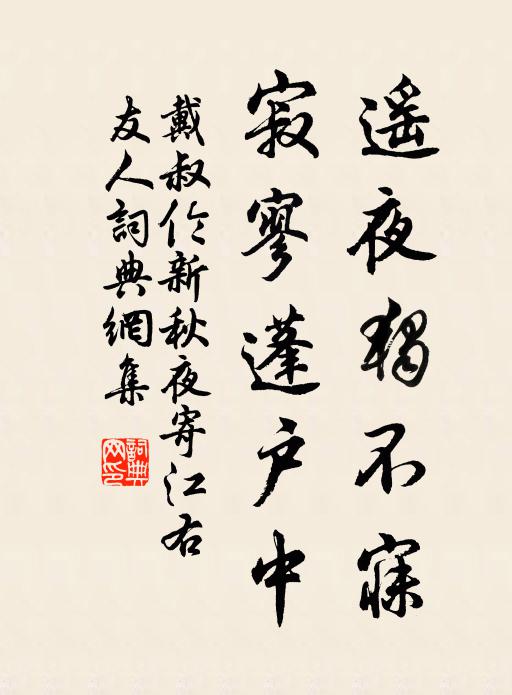 遥夜独不寐
寂寥蓬户中
戴叔伦新秋夜寄江右
友人詞典網集
詞典
网印